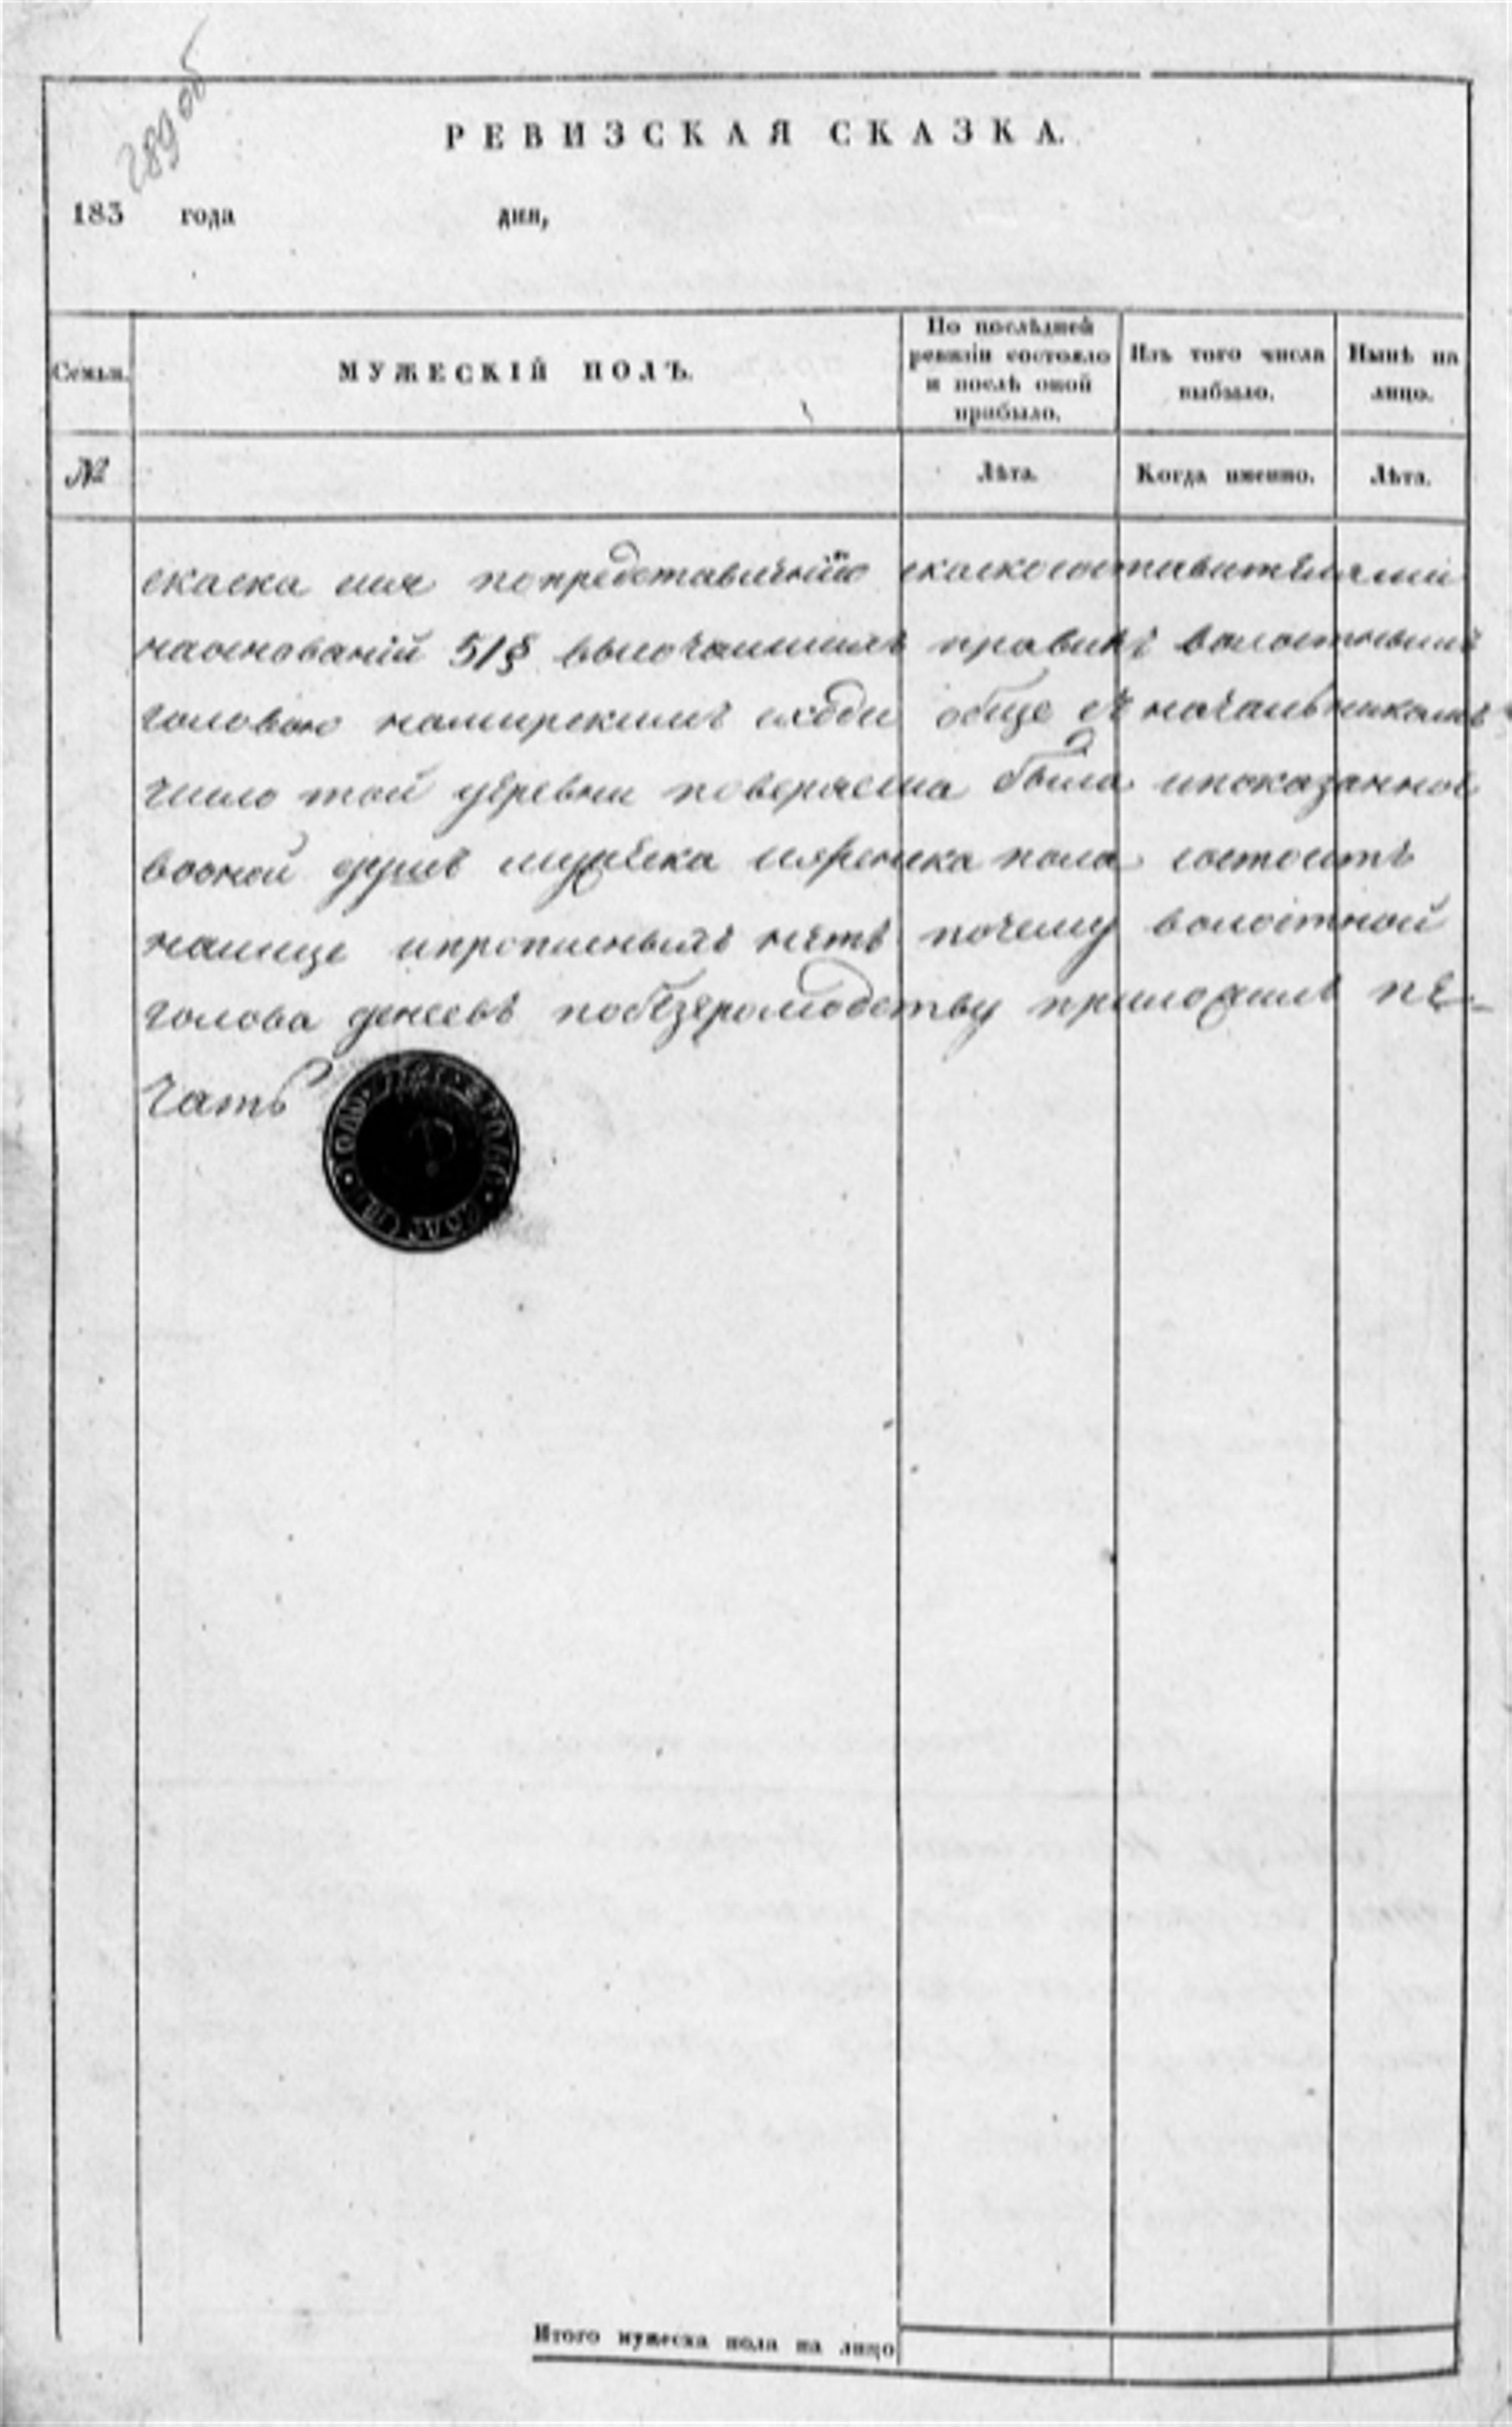 289 об
РЕВИЗСКАЯ СКАЗКА.
183 года дня,
Семьи.
МУЖЕСКІЙ ПОЛЪ.
По послѣдней ревизіи состояло и послѣ оной прибыло.
Изъ того числа выбыло.
Нынѣ на лицо.
№
Лѣта.
Когда именно.
Лѣта.
скаска сия попредставлению скаскосоставителями
наоснованій 51§ высочаишихъ правилъ волостнымъ
головою намирскимъ сходе обще съ начальникамъ
число той деревни поверяема была ипоказанное
воной душъ мужеска иженска пола состоитъ
налице ипрописныхъ нетъ почему волостной
голова по приложилъ пе-
чать
Итого мужеска пола на лицо